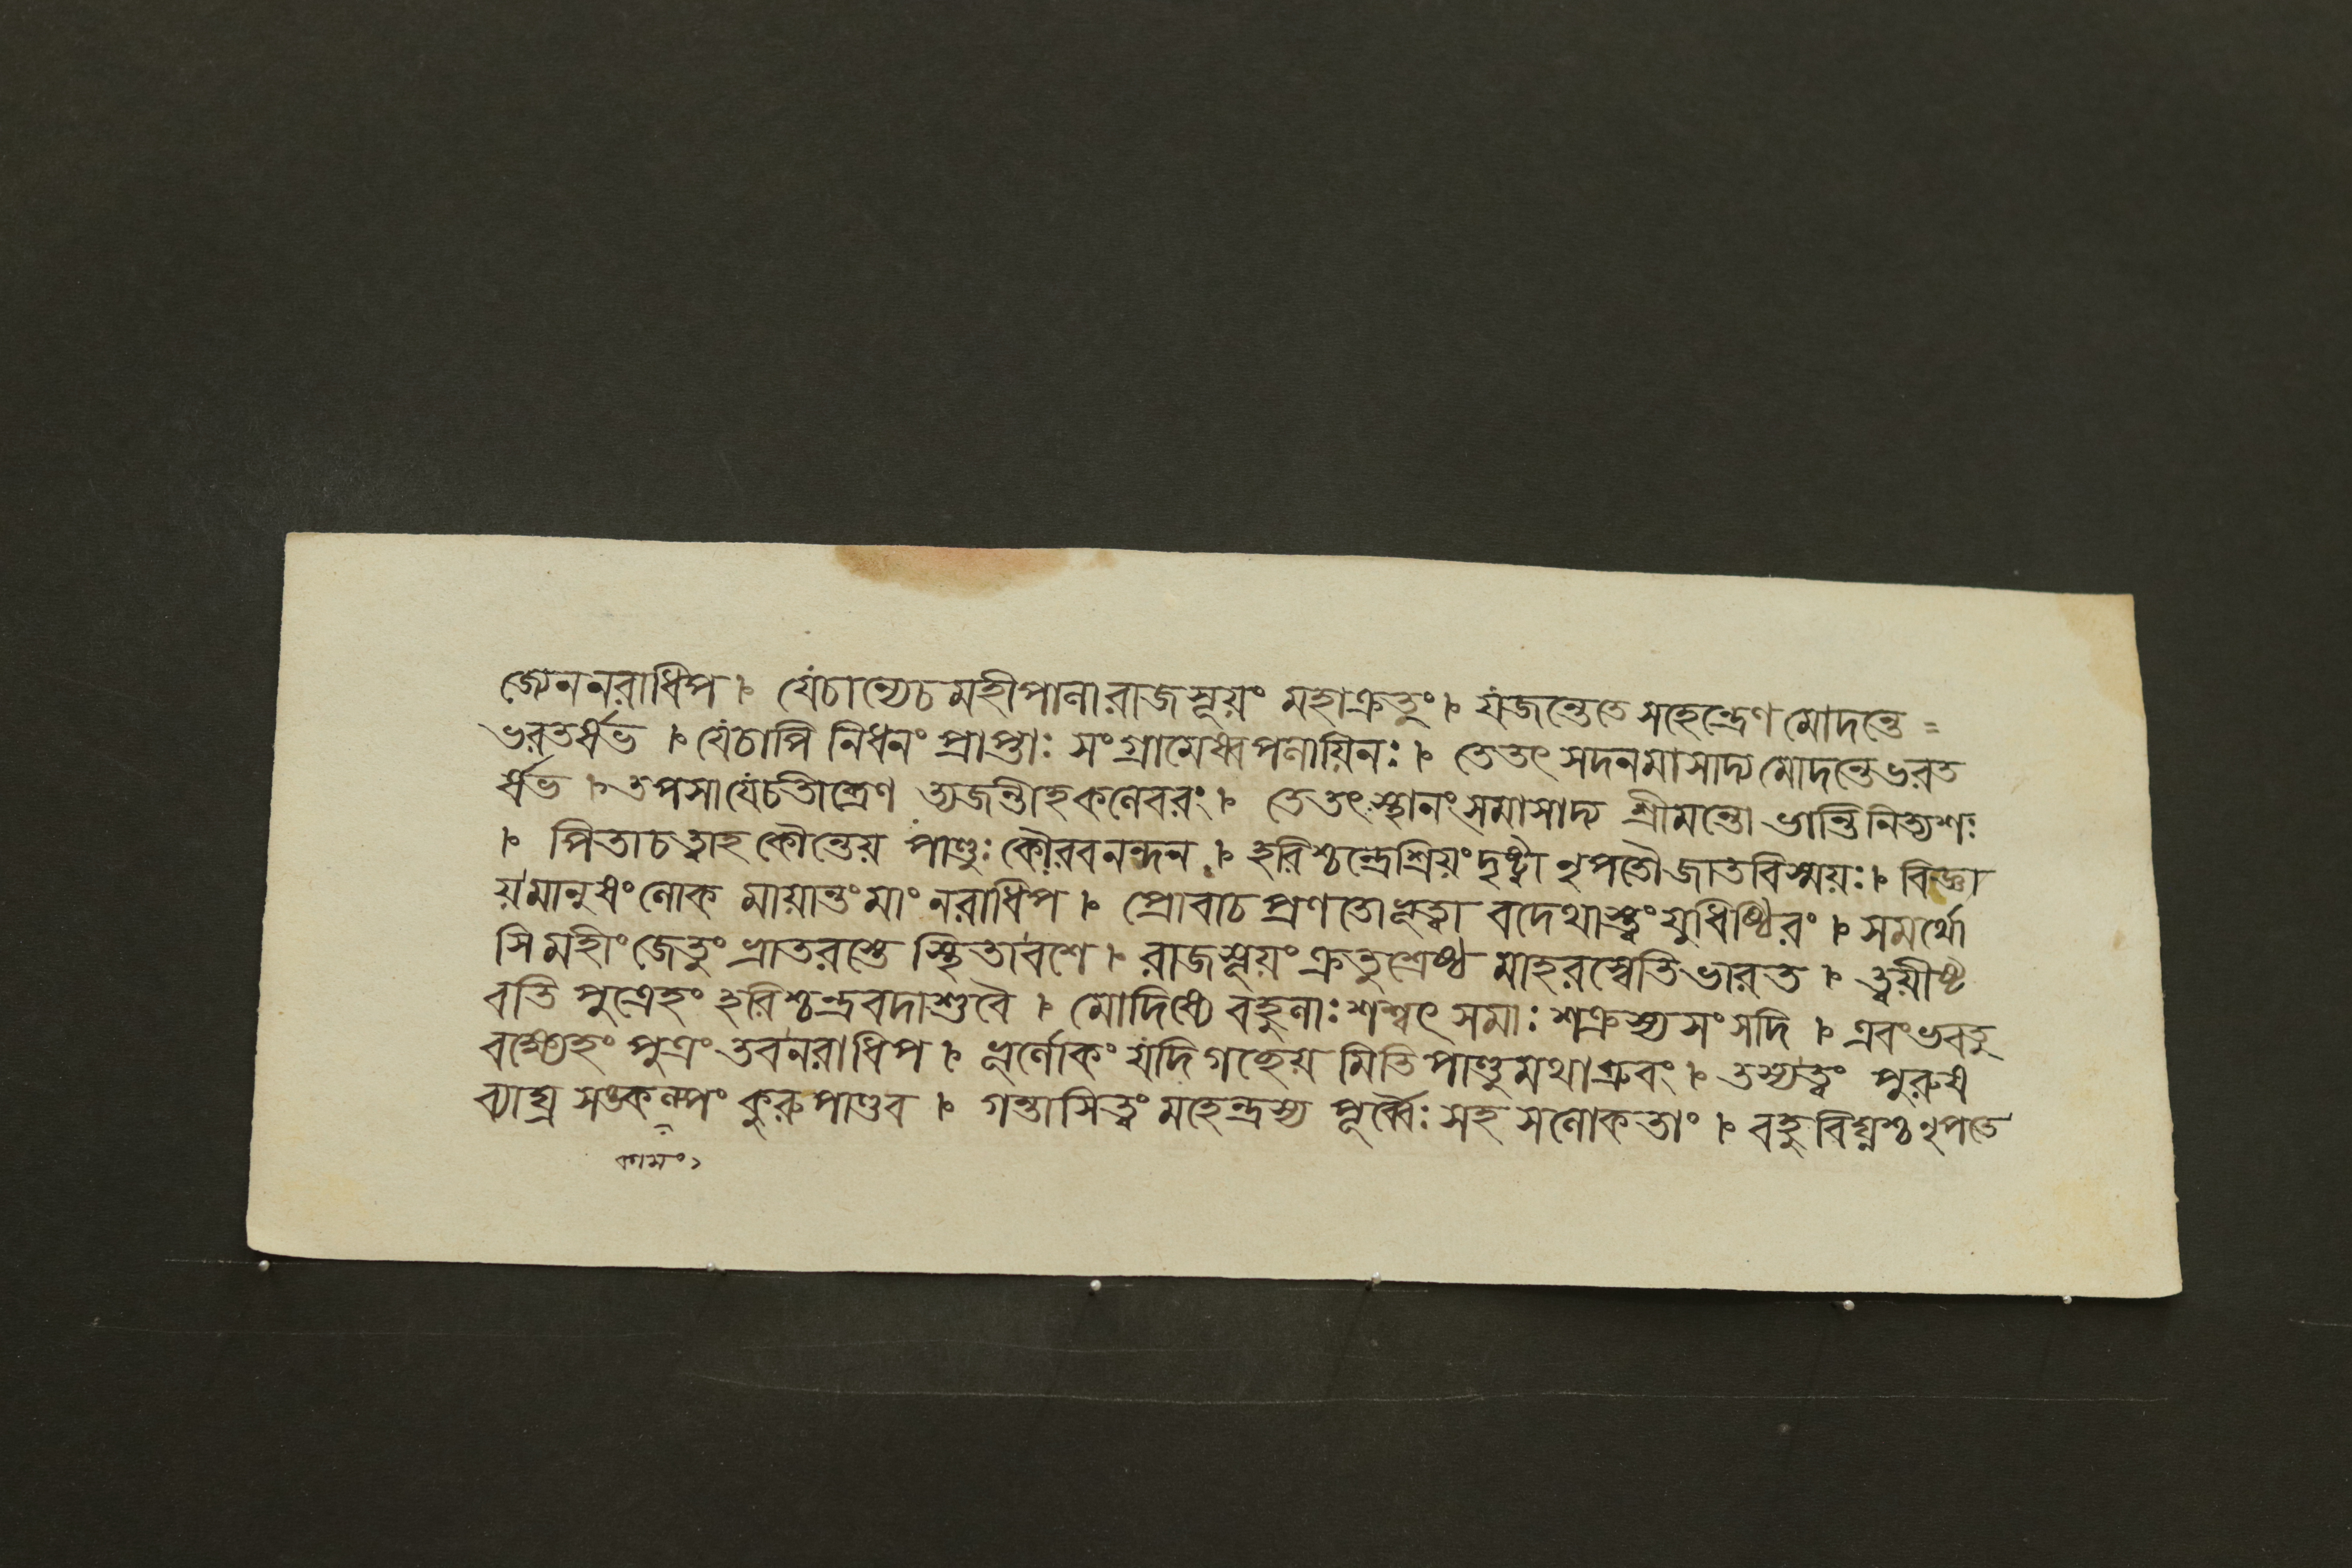 জ্যেন নরাধিপ ৷ যেচান্যেচ মহীপালারাজসূয়ং মহাক্রতুং ৷ যজন্তেতে সহেন্দ্রেণ মোদন্তে =
ভরতর্ষভ ৷ যেচাপি নিধনং প্রাপ্তাঃ সংগ্রামেষ্বপলায়িনঃ ৷ তেতৎ সদনমাসাদ্য মোদন্তেভরত
র্ষভ ৷ তপসাযেচতীব্রেণ ত্যজন্তীহকলেবরং ৷ তেতৎস্থানংসমাসাদ্য শ্রীমন্তো ভান্তিনিত্যশঃ
৷ পিতাচত্বাহ কৌন্তেয় পাণ্ডুঃ কৌরবনন্দন ৷ হরিশ্চন্দ্রেশ্রিয়ংদৃষ্ট্বা নৃপতৌজাতবিস্ময়ঃ ৷ বিজ্ঞা
য়মানুষংলোক মায়ান্তংমাং নরাধিপ ৷ প্রোবাচ প্রণতোভূত্বা বদেথাস্ত্বংযুধিষ্ঠিরং ৷ সমর্থো
সি মহীং জেতুং ভ্রাতরস্তে স্থিতাবশে ৷ রাজসূয়ংক্রতুশ্রেষ্ঠ মাহরস্বেতিভারত ৷ ত্বয়ীষ্ট
বতি পুত্রেহং হরিশ্চন্দ্রবদাশুবৈ ৷ মোদিষ্যে বহুলাঃ শশ্বৎ সমাঃ শক্রস্যসংসদি ৷ এবংভবতু
বক্ষ্যেহং পুত্রং তবনরাধিপ ৷ ভূর্লোকং যদিগচ্ছেয় মিতি পাণ্ডুমথাব্রুবং ৷ তস্যত্বং পুরুষ
ব্যাঘ্র সঙ্কল্পং কুরু পাণ্ডব ৷ গন্তাসিত্বং মহেন্দ্রস্য পূর্ব্বৈঃ সহ সলোকতাং ৷ বহুবিঘ্নশ্চনৃপতে
কামং১